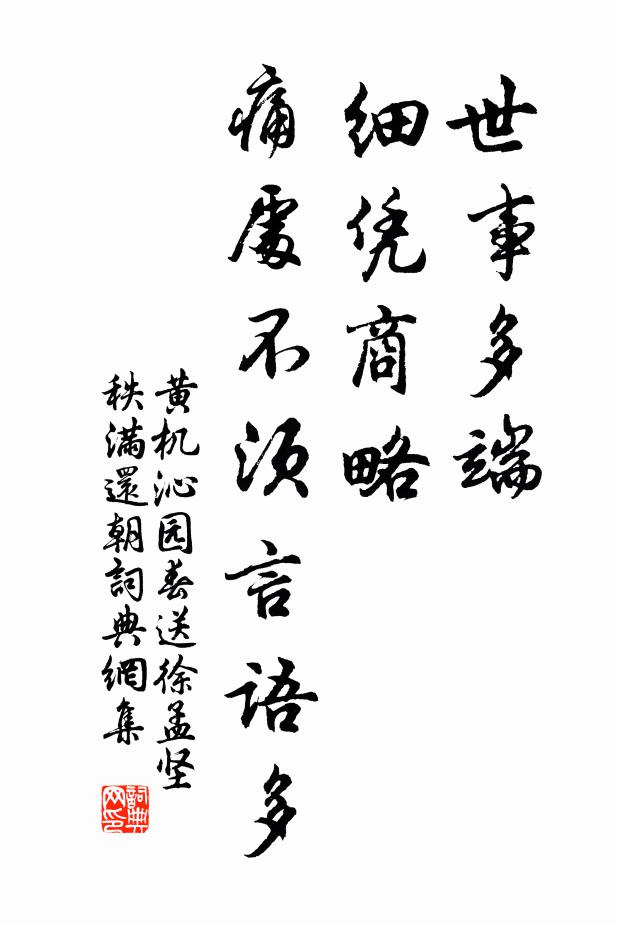 世事多端
细凭商略
痛處不须言语多
黄机沁园春送徐孟坚
秩满還朝詞典網集
詞典
网印